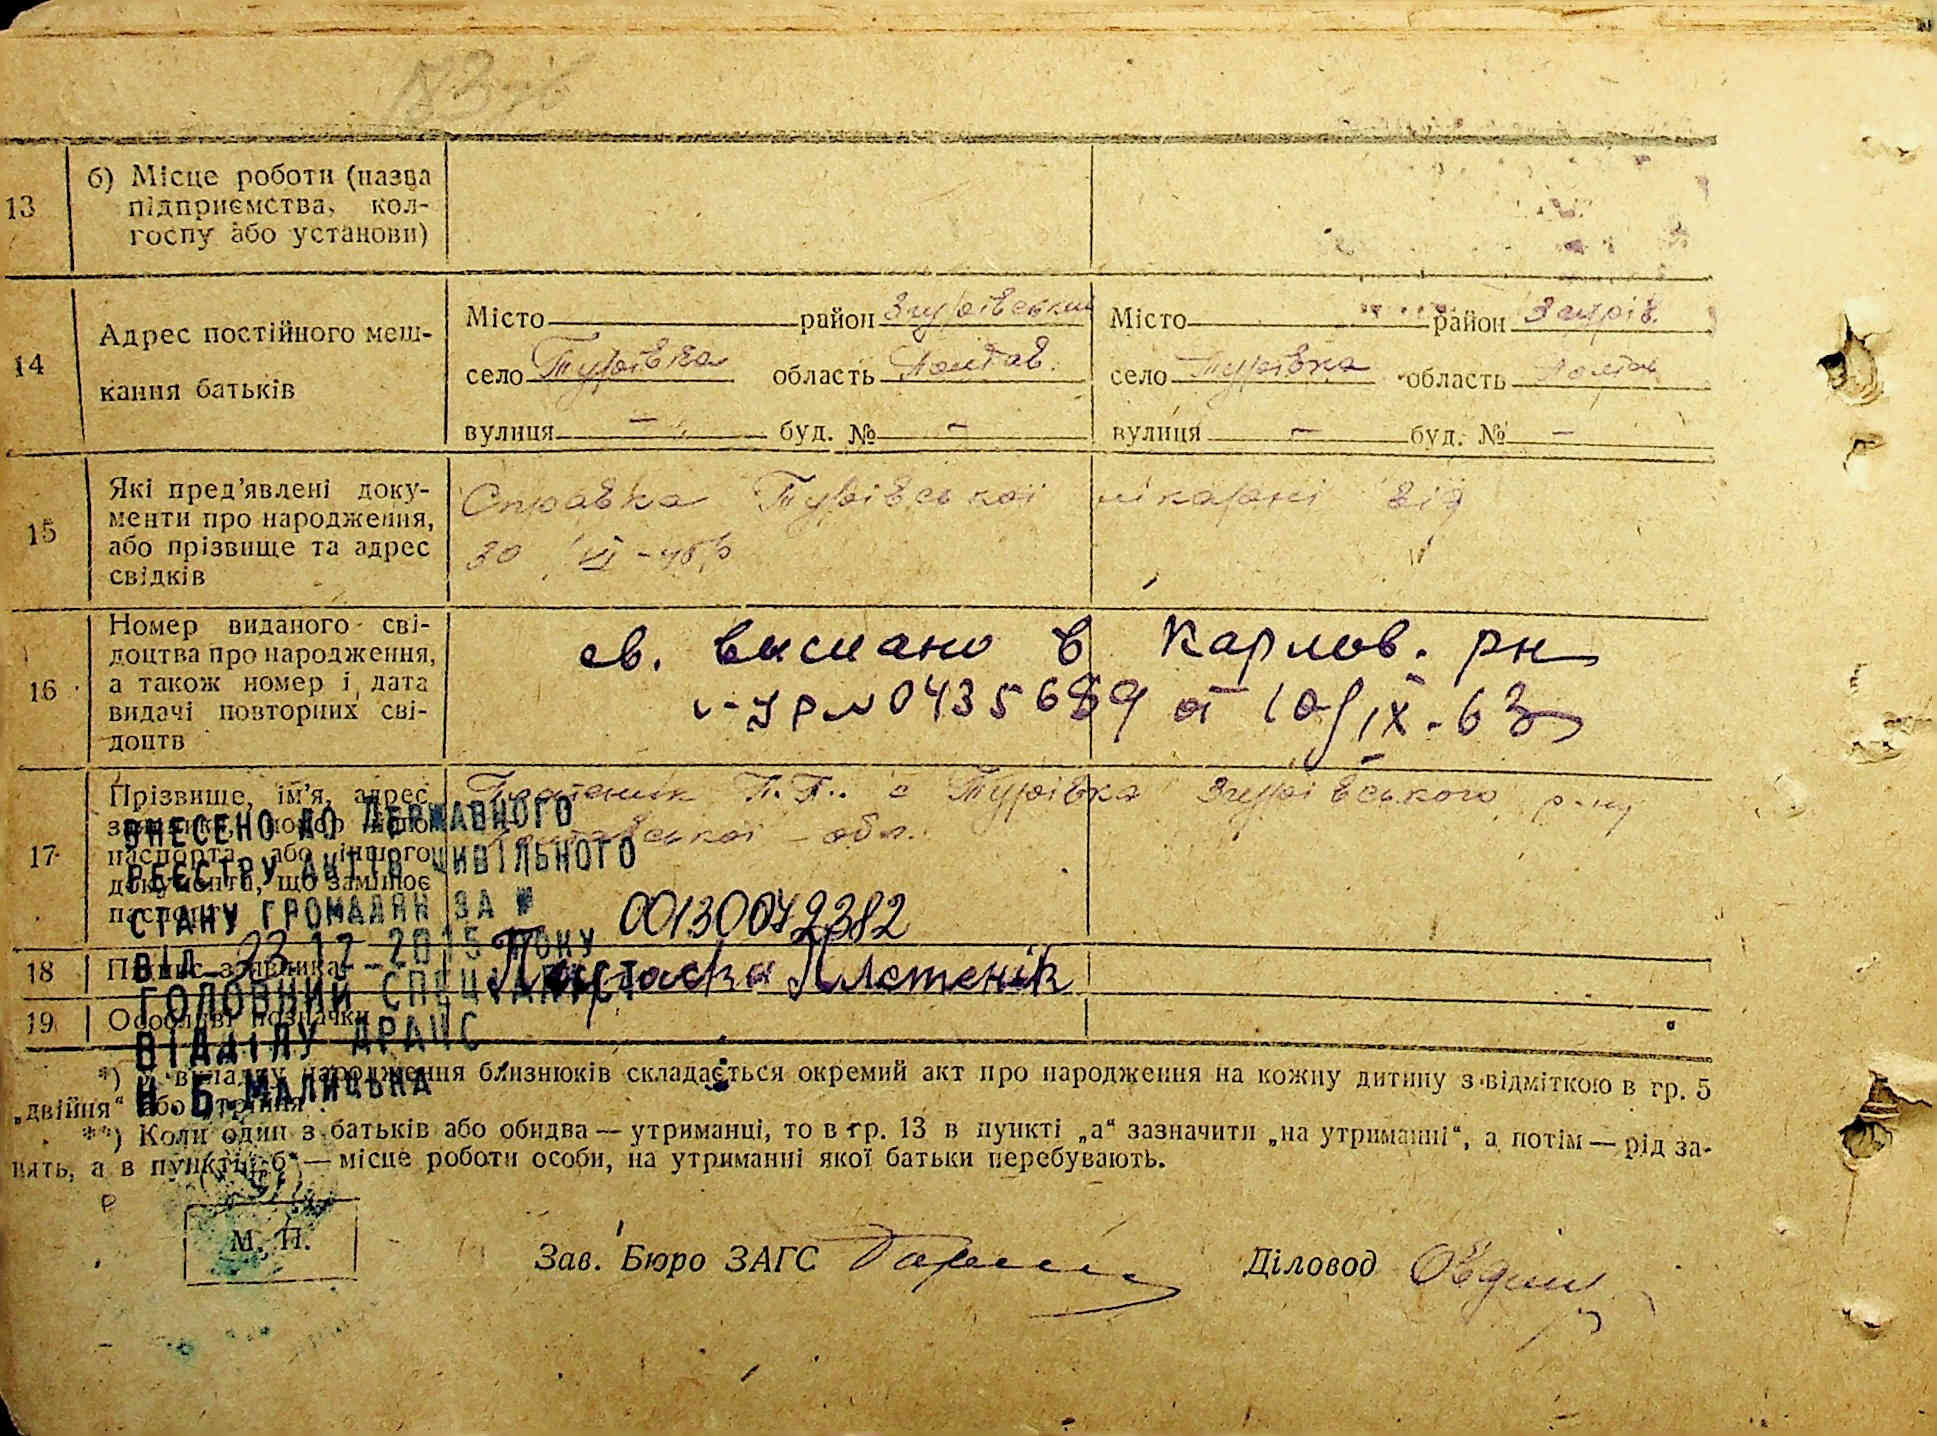 13
б) Місце роботи (назва
підприємства, кол-
госпу або установи)
14
Адрес постійного меш-
кання батьків
Місто район Згурівський
село Турівка область Полтав.
вулиця — буд. № —
Місто район Згурів.
село Турівка область Полтав
вулиця — буд. № —
15
Які пред’явлені доку-
менти про народження,
або прізвище та адрес
свідків
Справка Турівської лікарні від
30
16
Номер виданого сві-
доцтва про народження,
а також номер і дата
видачі повторних сві-
доцтв
св. висмано в Карлов. рн
0435689 от 10/IX-63
17
Прізвище, ім’я, адрес
паспорта або іншого
документа, що замінює
Плетенік П. Г. с Турівка Згурівського р-ну
обл.
ВНЕСЕНО ДО ДЕРЖАВНОГО
РЕЄСТРУ АКТІВ ЦИВІЛЬНОГО
СТАНУ ГРОМАДЯН ЗА №
00130042382
ВІД 23.12.2015 РОКУ
ГОЛОВНИЙ СПЕЦІАЛІСТ
ВІДДІЛУ ДРАЦС
Н.Б.МАЛИЦЬКА
18
Плетенік
19
Особливі позначки
*) У випадку народження близнюків складається окремий акт про народження на кожну дитину з відміткою в гр. 5
„двійня“ або
**) Коли один з батьків або обидва — утриманці, то в гр. 13 в пункті „а“ зазначити „на утриманні“, а потім — рід за-
нять, а в пункті „б“ — місце роботи особи, на утриманні якої батьки перебувають.
М. П.
Зав. Бюро ЗАГС
Діловод